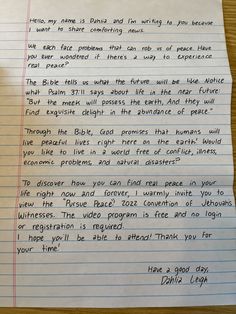 Hello, my name is Dahlia and I'm writing to you because
I want to share comforting news.
We each face problems that can rob us of peace. Have
you ever wondered if there's a way to experience
real peace?
The Bible tells us what the future will be like. Notice
what Psalm 37:11 says about life in the near future:
"But the meek will possess the earth, And they will
find exquisite delight in the abundance of peace."
Through the Bible, God promises that humans will
live peaceful lives right here on the earth! Would
you like to live in a world free of conflict, illness,
economic problems, and natural disasters?
To discover how you can find real peace in your
life right now and forever, I warmly invite you to
view the "Pursue Peace"! 2022 Convention of Jehovah's
Witnesses. The video program is free and no login
or registration is required.
I hope you'll be able to attend! Thank you for
your time!
Have a good day,
Dahlia Leigh